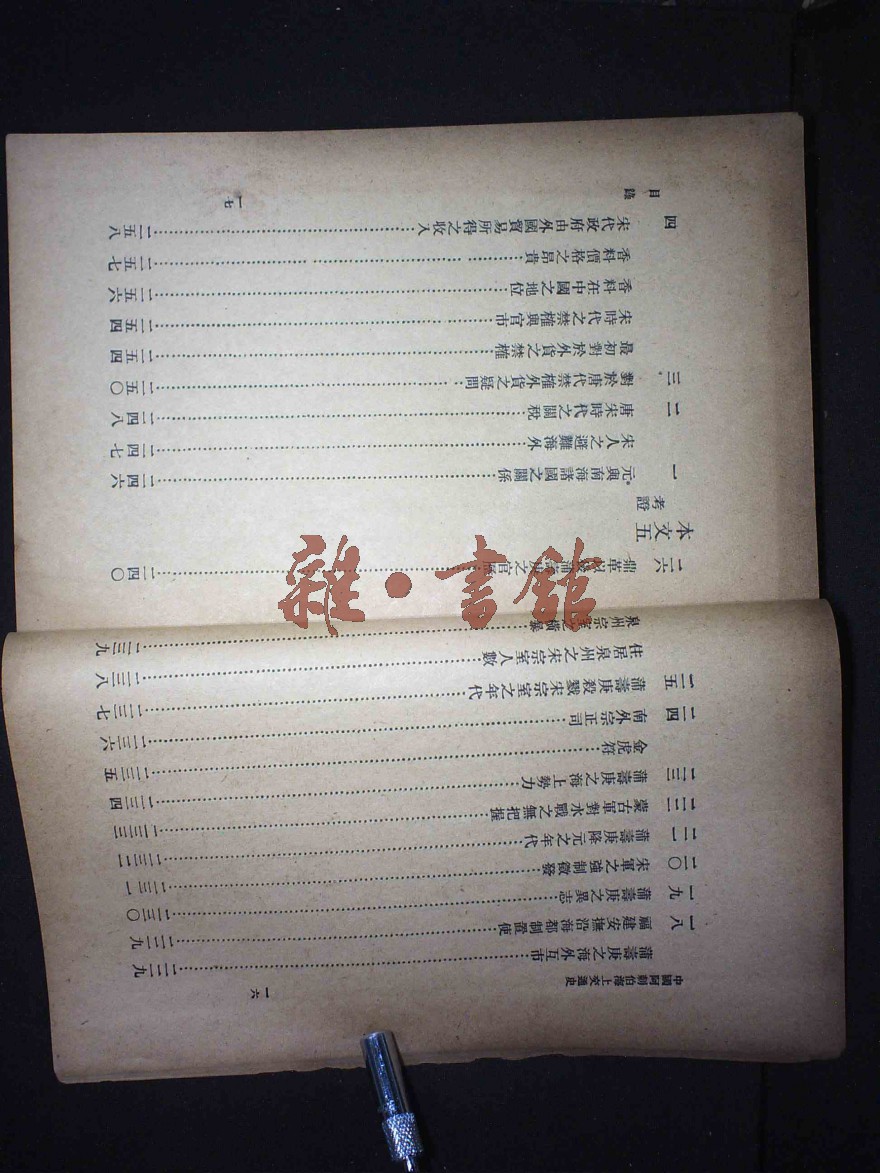 中國阿剌伯海上交通史
一六
蒲壽庚之海外互市……一二九
一八 福建安撫沿海都制置使……一二九
一九 蒲壽庚之異志……一三〇
二〇 宋軍之強制徵發……一三一
二一 蒲壽庚降元之年代……一三二
二二 蒙古軍對水戰之無把握……一三三
二三 蒲壽庚之海上勢力……一三四
金虎符……一三五
二四 南外宗正司……一三六
二五 蒲壽庚殺戮宋宗室之年代……一三七
住居泉州之宋宗室人數……一三八
泉州宗室之橫暴……一三九
二六 鼎革蒲壽庚之官……一四〇
本文五
考證
一 元與南海諸國之關係……一四六
宋人之避難海外……一四七
二 唐宋時代之關稅……一四八
三 對於唐代禁榷外貨之疑問……一五〇
最初對於外貨之禁榷……一五四
宋時代之禁榷與官市……一五四
香料在中國之地位……一五六
香料價格之昂貴……一五七
四 宋代政府由外國貿易所得之收入……一五八
目錄
一七
雜·書館